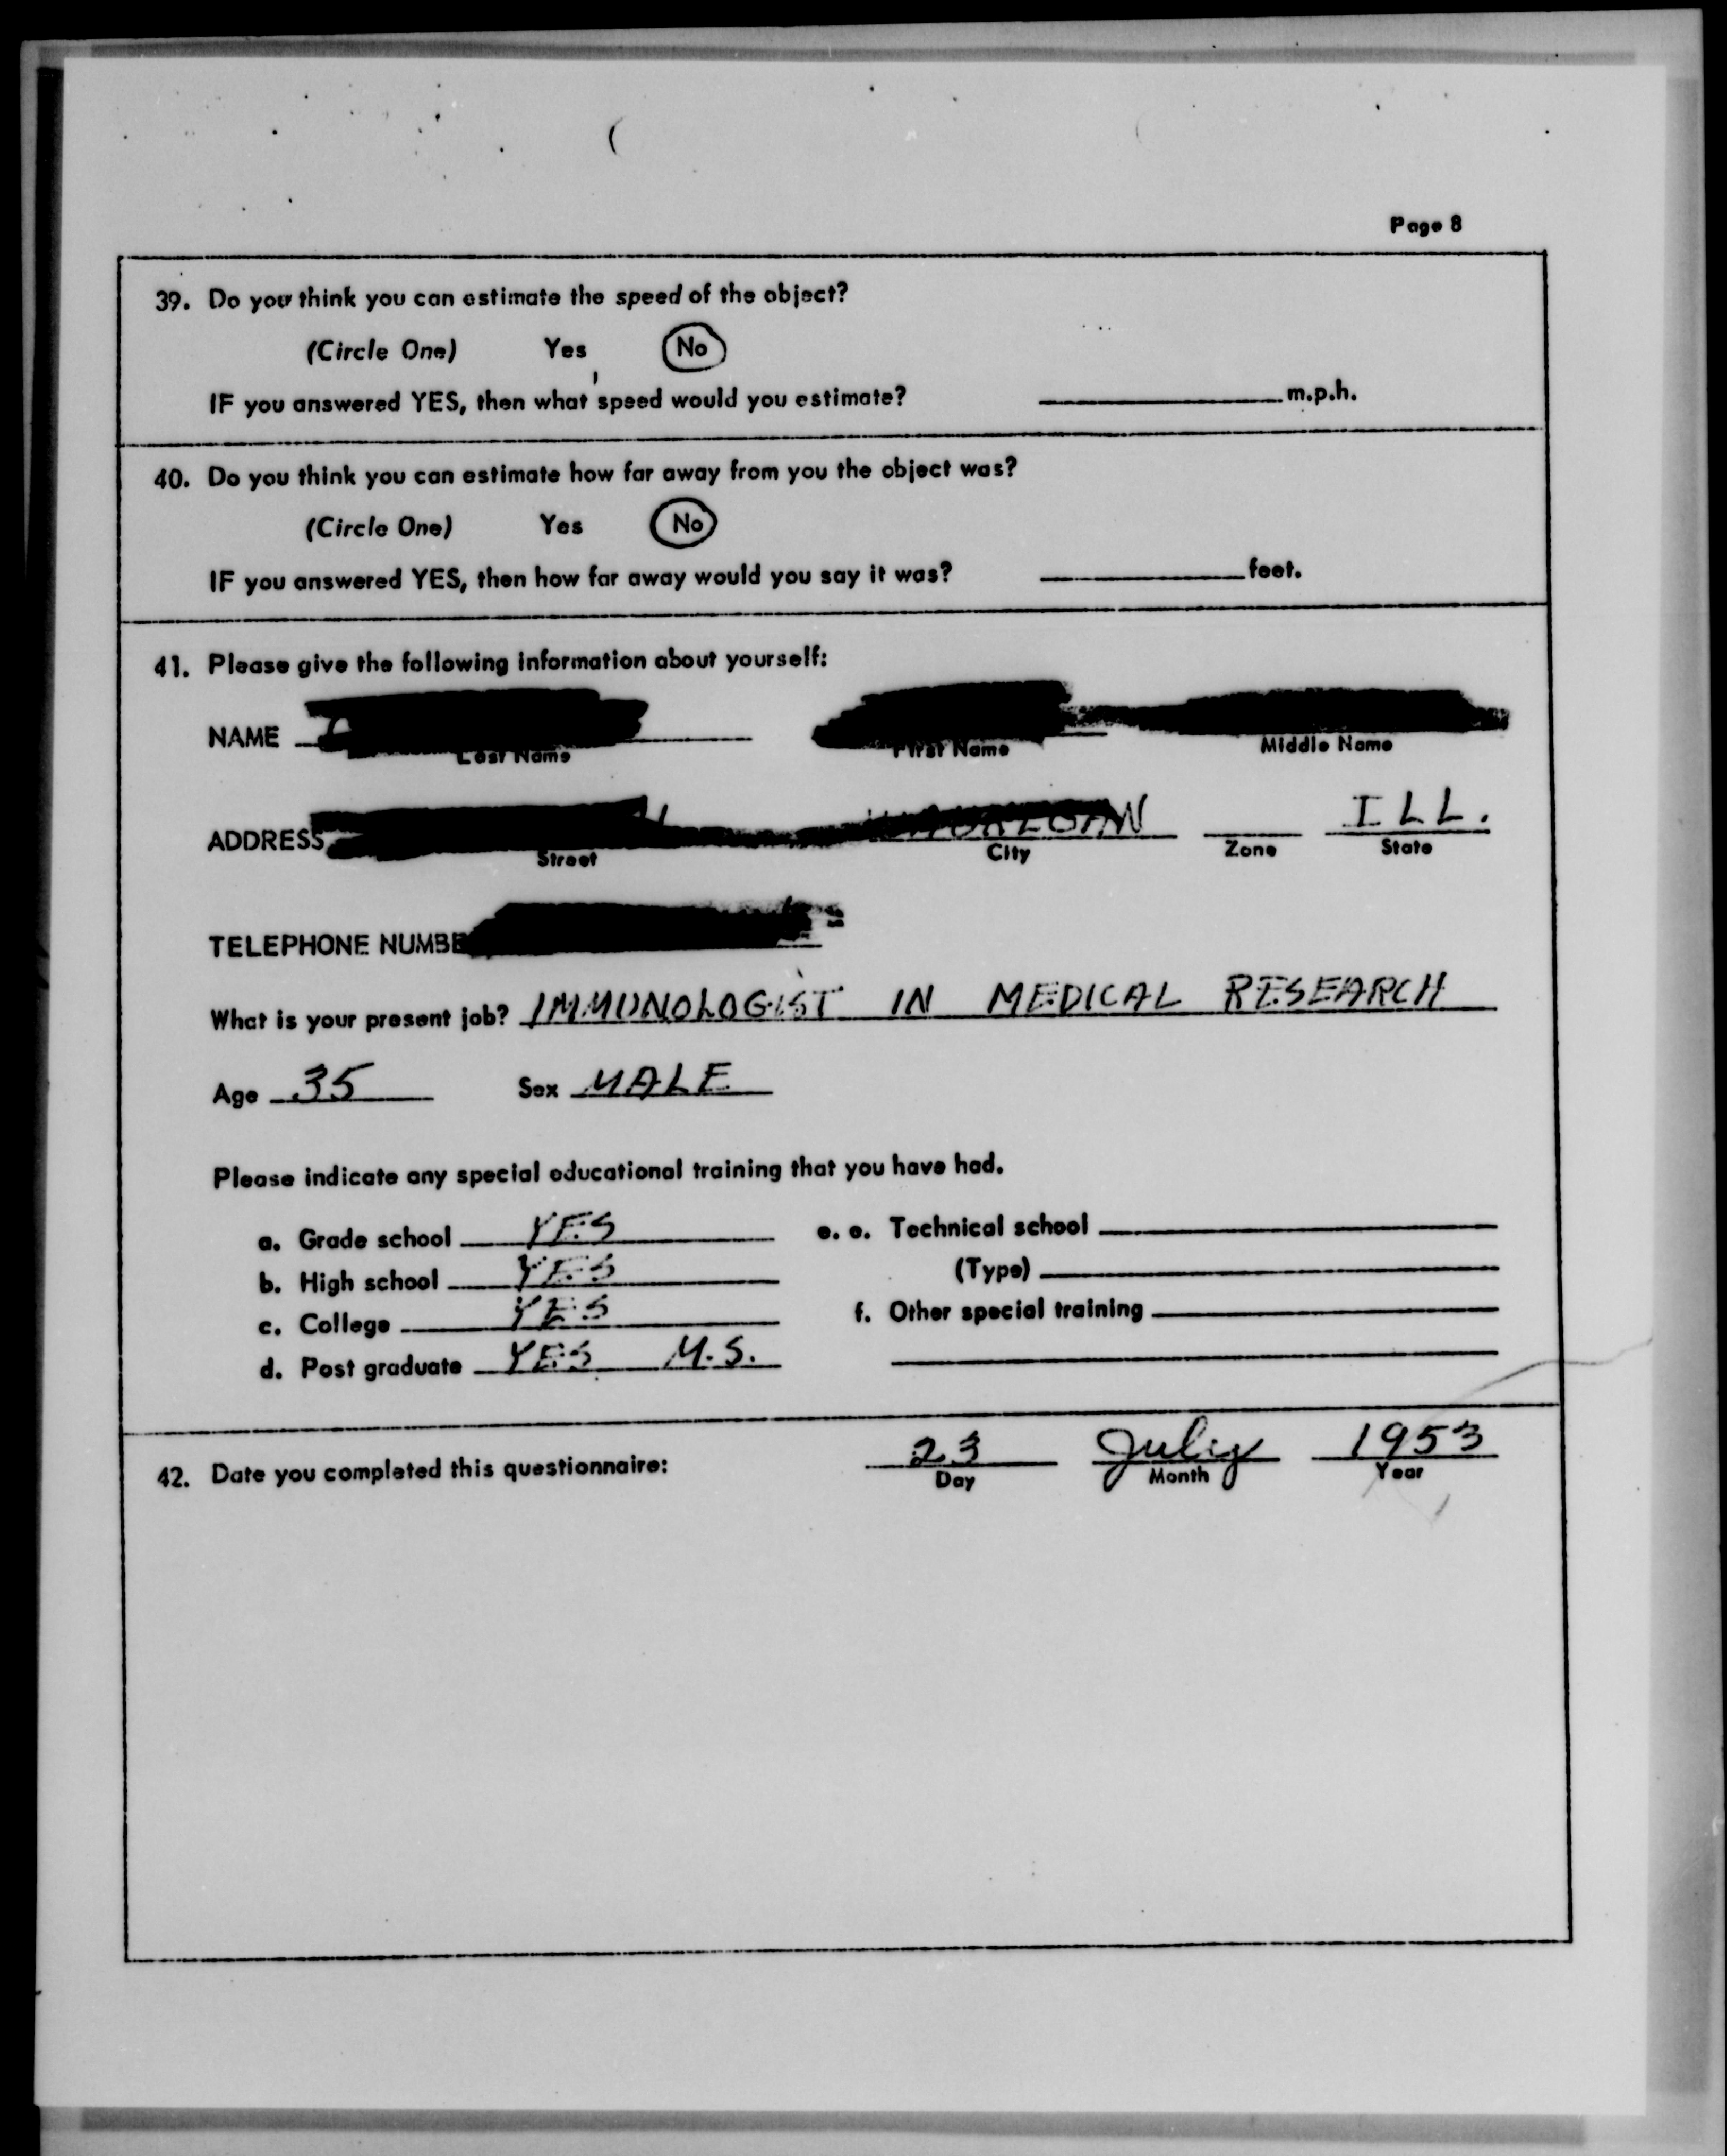 Page 8
39. Do you think you can estimate the speed of the object?
(Circle One) Yes No
IF you answered YES, then what speed would you estimate? m.p.h.
40. Do you think you can estimate how far away from you the object was?
(Circle One) Yes No
IF you answered YES, then how far away would you say it was? feet.
41. Please give the following information about yourself:
NAME
Last Name First Name Middle Name
ADDRESS ILL.
Street City Zone State
TELEPHONE NUMBE
What is your present job? IMMUNOLOGIST IN MEDICAL RESEARCH
Age 35 Sex MALE
Please indicate any special educational training that you have had.
a. Grade school YES e. e. Technical school
b. High school YES (Type)
c. College YES f. Other special training
d. Post graduate YES M.S.
42. Date you completed this questionnaire: 23 July 1953
Day Month Year